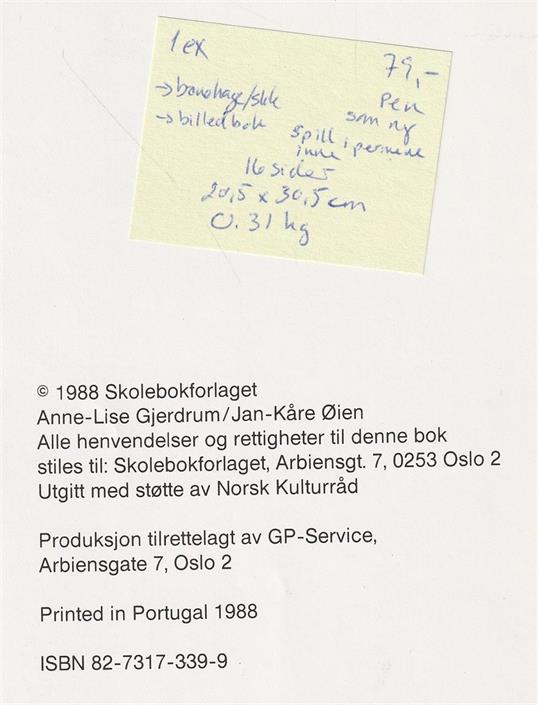 1 ex
79,-
→ barnehage/skk
→ billedbok
Pen
som ny
spill i permene
inne
16 sider
20,5 x 30,5 cm
0.31 kg
© 1988 Skolebokforlaget
Anne-Lise Gjerdrum/Jan-Kåre Øien
Alle henvendelser og rettigheter til denne bok
stiles til: Skolebokforlaget, Arbiensgt. 7, 0253 Oslo 2
Utgitt med støtte av Norsk Kulturråd
Produksjon tilrettelagt av GP-Service,
Arbiensgate 7, Oslo 2
Printed in Portugal 1988
ISBN 82-7317-339-9